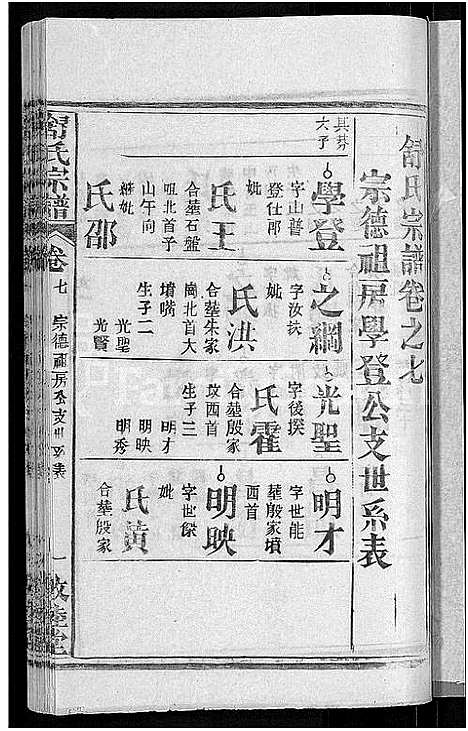 舒氏宗譜卷之七
宗德祖房學登公支世系表
其芬
六子
學登
字山普
登仕郎
妣
氏王
合葬石盤
咀北首子
山午向
繼妣
氏邵
之綱
字汝扶
妣
氏洪
合葬朱家
崗北首大
墳嘴
生子二
光聖
光賢
光聖
字後撰
氏霍
合葬殷家
墳酉首
生子三
明才
明映
明秀
明才
字世能
葬殷家墳
酉首
明映
字世傑
妣
氏黃
合葬殷家
舒氏宗譜
卷七
宗德祖房公支世系表
一
敦睦堂